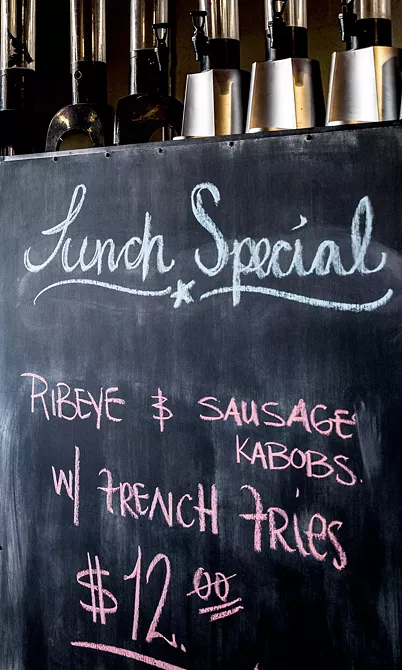 Lunch Special
RIBEYE & SAUSAGE
KABOBS.
W/ FRENCH FRIES
$12.00